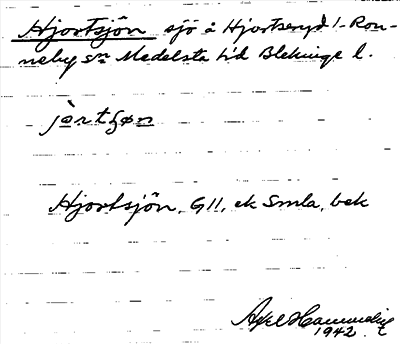 Hjortsjön sjö å Hjortseryd 1, Ron-
neby sn Medelsta hd Blekinge l.
jòrtʂøn
Hjortsjön, G11, ek Smla, bek
Axel
1942